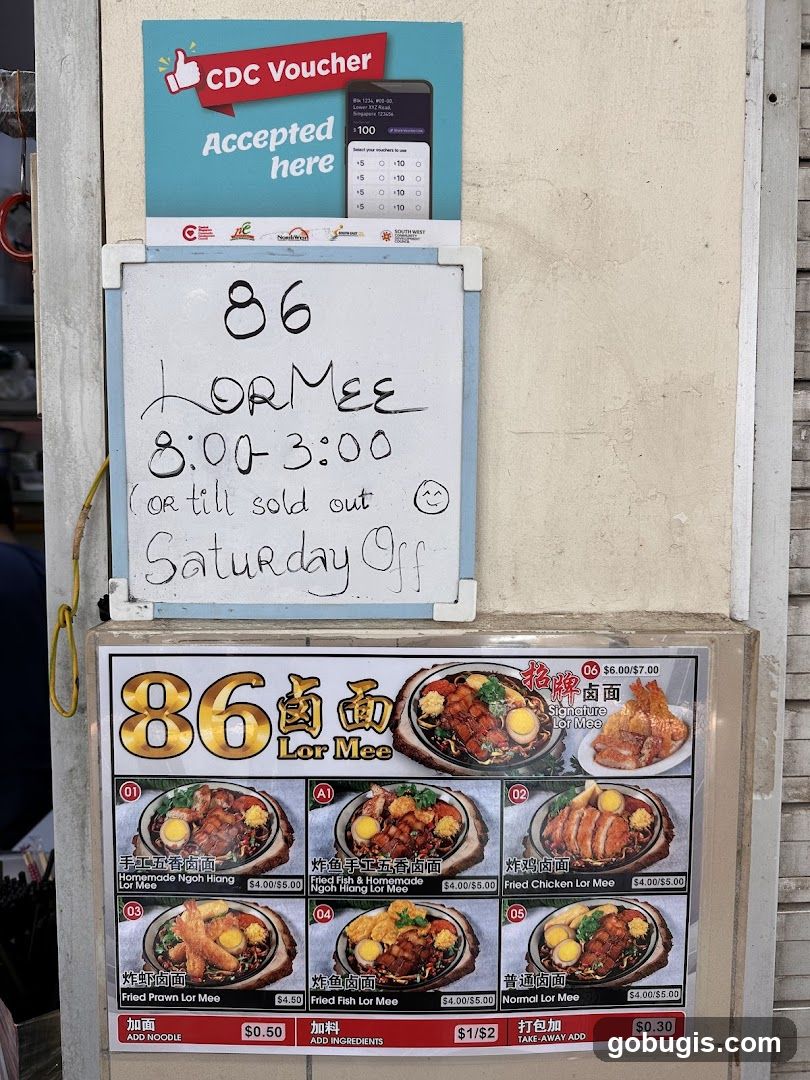 CDC Voucher
Accepted
here
Blk 1234, #00-00,
Lower XYZ Road,
Singapore 123456
$100
Select your vouchers to use
$5 $10
$5 $10
$5 $10
$5 $10
NorthWest
SOUTH EAST
SOUTH WEST
COMMUNITY
DEVELOPMENT
COUNCIL
86
LORMEE
8:00-3:00
(OR till sold out
Saturday Off
86 卤面
Lor Mee
招牌卤面
Signature
Lor Mee
06 $6.00/$7.00
01
手工五香卤面
Homemade Ngoh Hiang
Lor Mee
$4.00/$5.00
A1
炸鱼手工五香卤面
Fried Fish & Homemade
Ngoh Hiang Lor Mee
$4.00/$5.00
02
炸鸡卤面
Fried Chicken Lor Mee
$4.00/$5.00
03
炸虾卤面
Fried Prawn Lor Mee
$4.50
04
炸鱼卤面
Fried Fish Lor Mee
$4.00/$5.00
05
普通卤面
Normal Lor Mee
$4.00/$5.00
加面
ADD NOODLE
$0.50
加料
ADD INGREDIENTS
$1/$2
打包加
TAKE-AWAY ADD
$0.30
gobugis.com